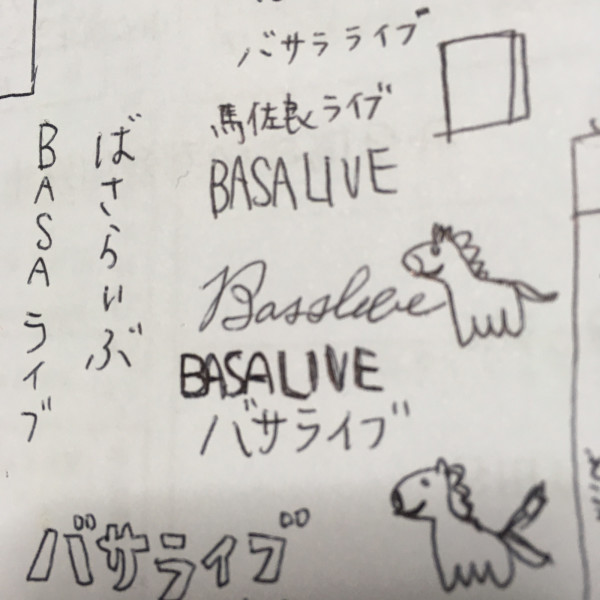 バサラライブ
馬佐良ライブ
BASALIVE
Basslive
BASALIVE
バサライブ
バサライブ
ばさらいぶ
BASAライブ